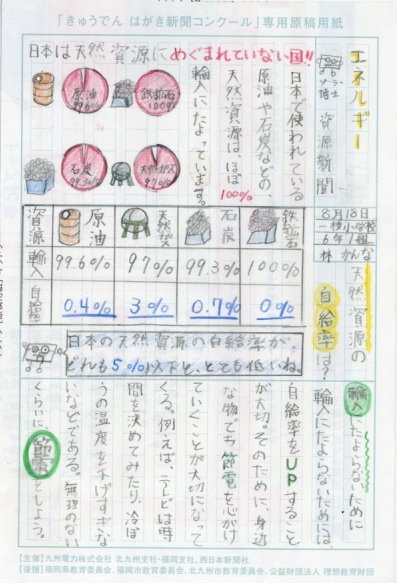 「きゅうでん はがき新聞コンクール」専用原稿用紙
エネルギー
ソーラー博士
資源新聞
8月18日
一枝小学校
6年1組
林 かんな
日本は天然資源にめぐまれていない国!!
原油
99.6%
鉄鉱石
100%
石炭
99.3%
天然ガス
97%
日本で使われている
原油や石炭などの、
天然資源は、ほぼ
100%
輸入にたよっています。
天然資源の
自給率は?
資源
原油
天然ガス
石炭
鉄鉱石
輸入
99.6%
97%
99.3%
100%
自給率
0.4%
3%
0.7%
0%
日本の天然資源の自給率が、
どれも5%以下と、とても低いね。
輸入にたよらないために
輸入にたよらないためには、
自給率をUPすること
が大切。そのために、身近
な物でも節電を心がけ
ていくことが大切になって
くる。例えば、テレビは時
間を決めてみたり、冷ぼ
うの温度を下げすぎな
いなどである。無理のない
くらいに、節電をしよう。
【主催】九州電力株式会社 北九州支社・福岡支社、西日本新聞社
【後援】福岡県教育委員会、福岡市教育委員会、北九州市教育委員会、公益財団法人 理想教育財団